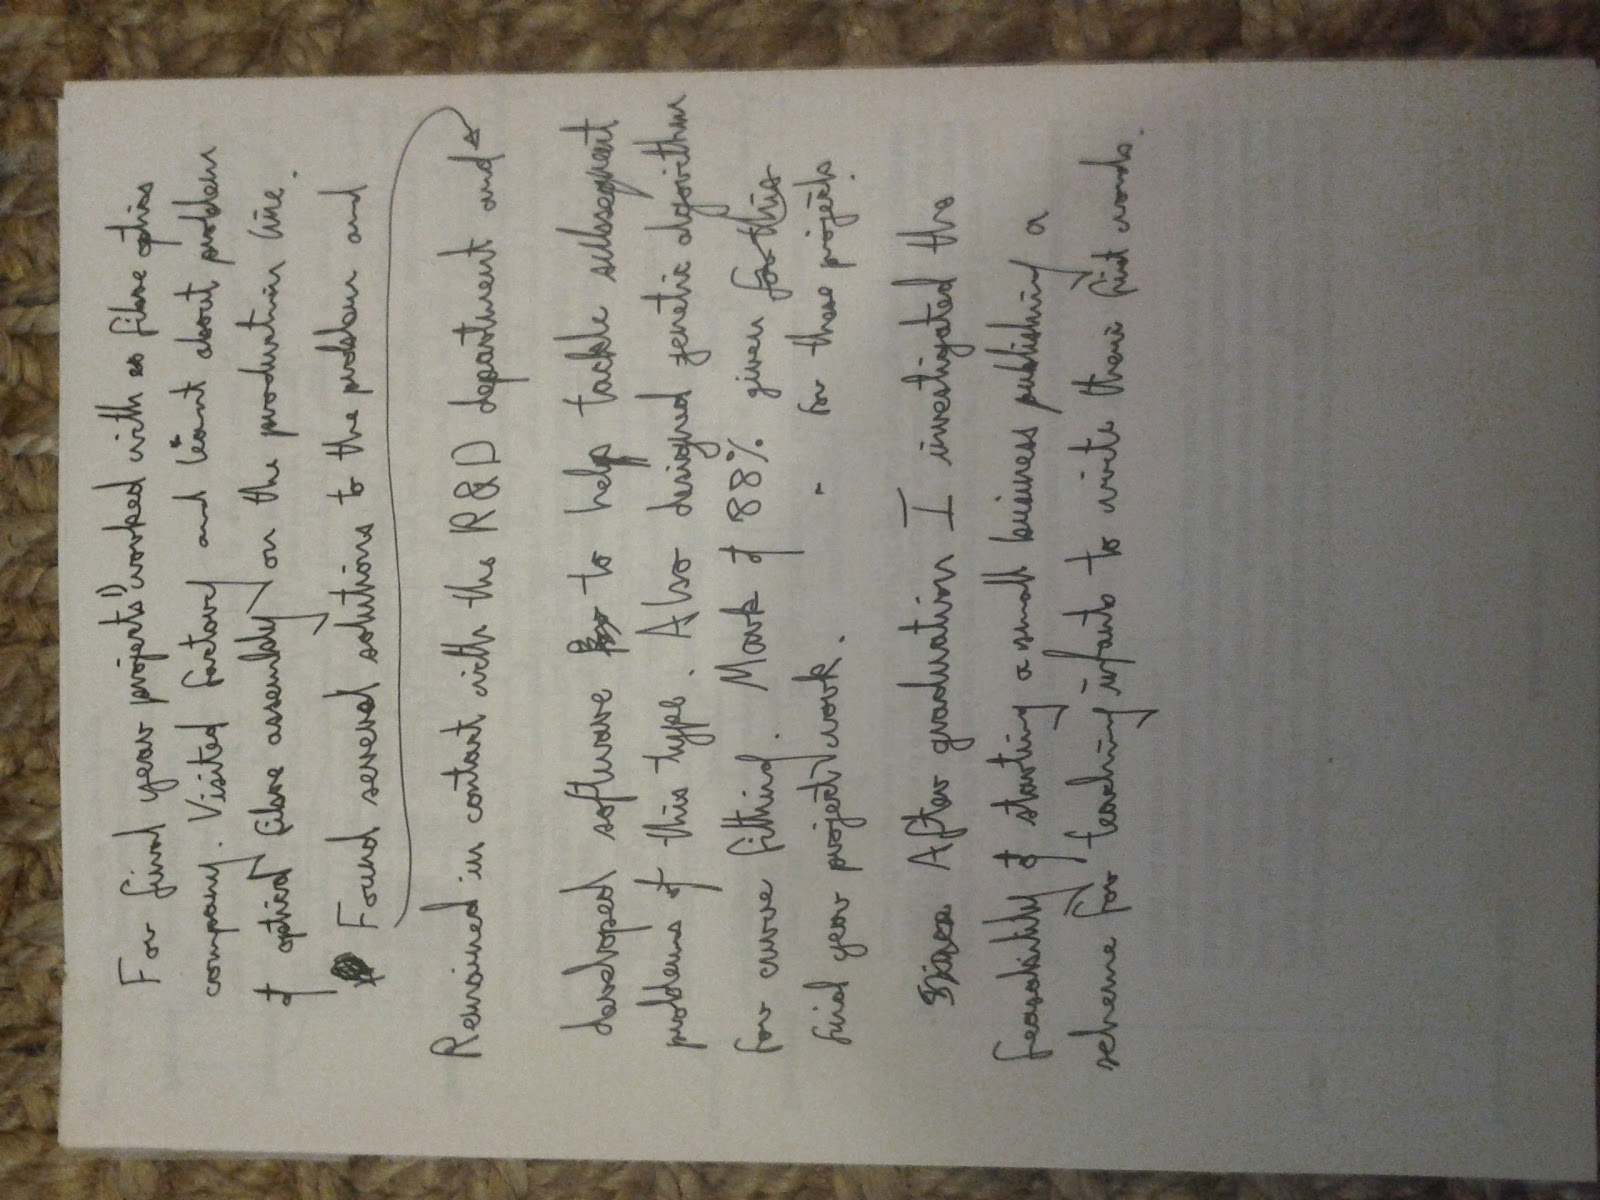 For final year projects 1) worked with a fibre optics
company. Visited factory and leant about problem
of optical fibre assembly on the production line.
Found several solutions to the problem and
Remained in contact with the R&D department and
developed software to help tackle subsequent
problems of this type. Also designed genetic algorithm
for curve fitting. Mark of 88% given for this
final year project work. " for these projects.
After graduation I investigated the
feasability of starting a small business publishing a
scheme for teaching infants to write their first words.